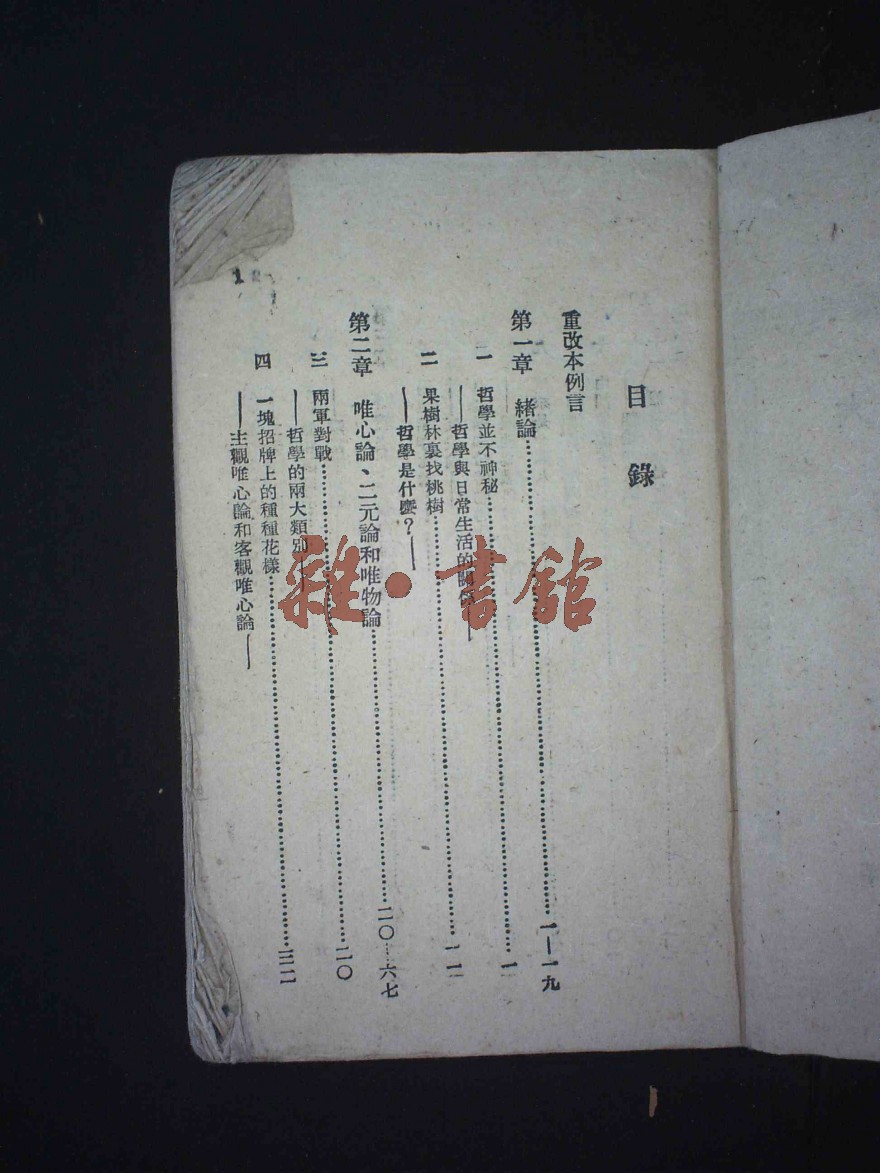 目錄
重改本例言
第一章 緒論……一—一九
一 哲學並不神秘……一
——哲學與日常生活的關係——
二 果樹林裏找桃樹……一一
——哲學是什麼？——
第二章 唯心論、二元論和唯物論……二〇—六七
三 兩軍對戰……二〇
——哲學的兩大類別——
四 一塊招牌上的種種花樣……三二
——主觀唯心論和客觀唯心論——
雜·書館